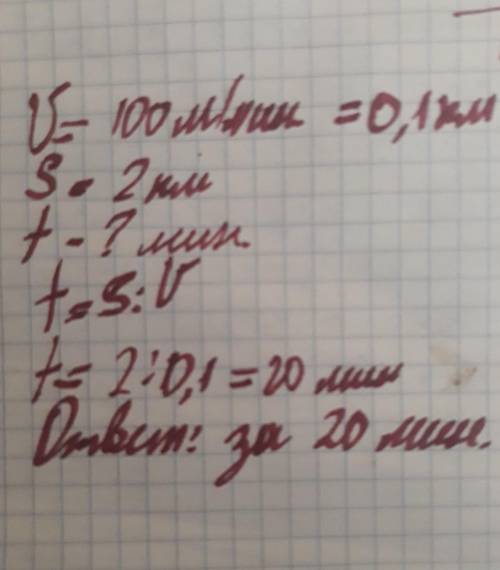 V = 100 м/мин = 0,1 км
S = 2 км
t - ? мин.
t = S : V
t = 2 : 0,1 = 20 мин
Ответ: за 20 мин.